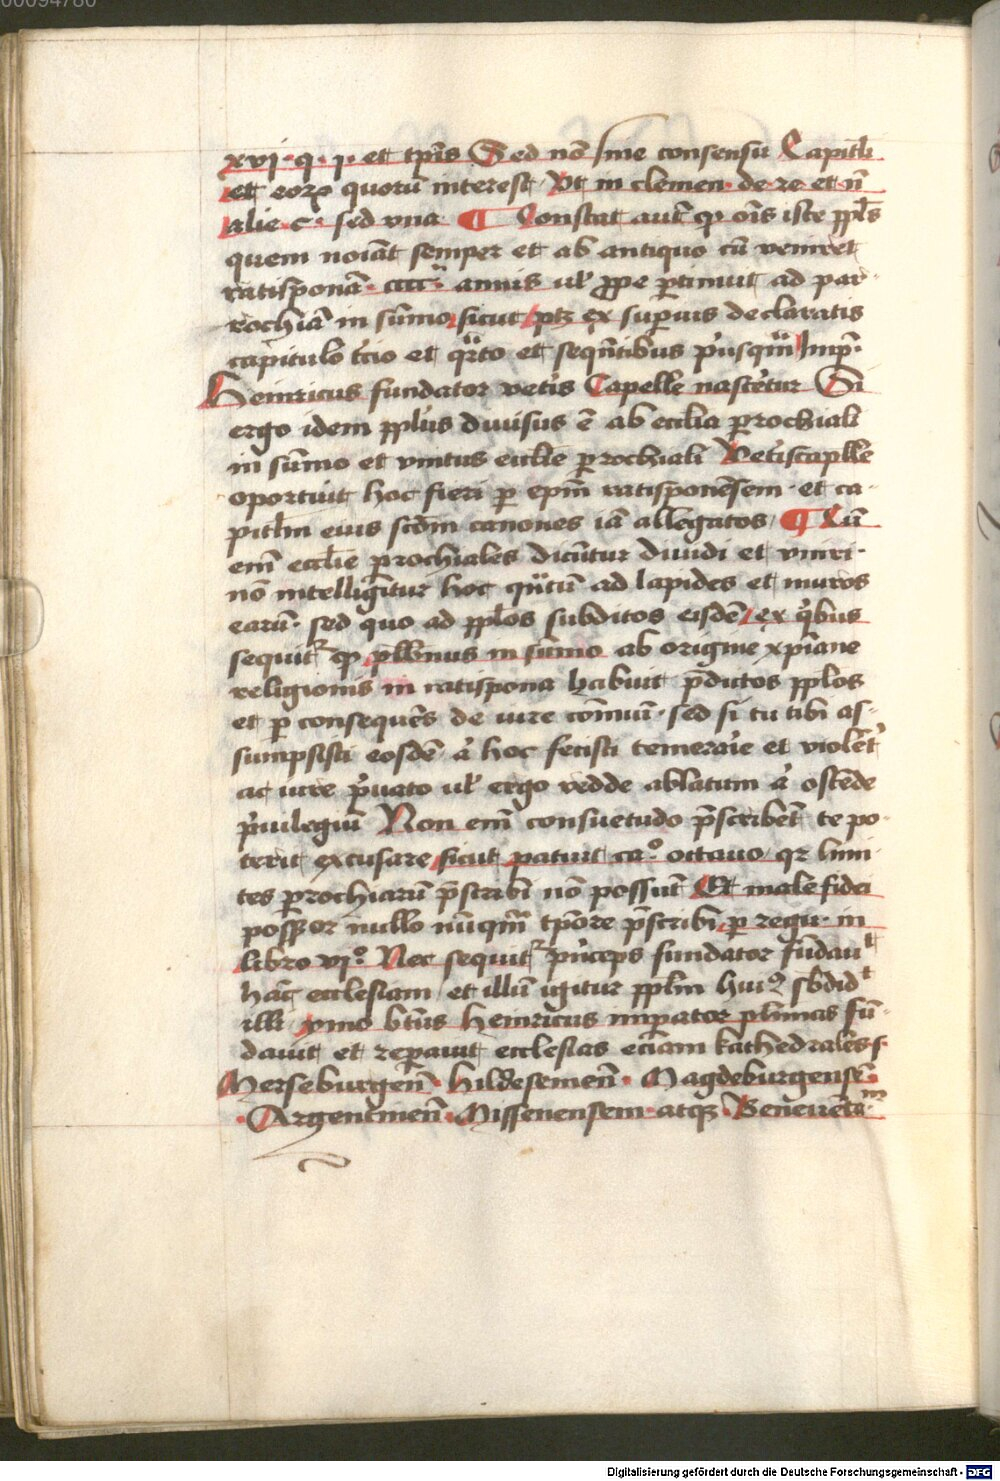 00094780
xvj · q · j · et tp̄is Sed nō sine consensu Capitli
et eorꝝ quorū interest Vt in clemen · de re et n̄
alie c · sed vna ¶ Constat autē ꝙ oīs iste ppl̄s
quem noīāt semper et ab antiquo cū veniret
ratisponā · cccc annis ul̓ ꝓpe ꝑtinuit ad par-
rochiā in sūmo sicut ptꝫ ex suꝑius declaratis
capitulo t̓cio et q̈rto et seqn̄tibus pͥusqm̄ Imꝑ ·
Heinricus fundator vet̓is Capelle nascēt̓ur Si
ergo idem pplūs diuisus ē ab eccl̄ia ꝑrochiali
in sūmo et vnitus eccl̄ie ꝑrochiali Vet̓iscaplle
oportuit hoc fieri ꝑ epm̄ ratisponēsem · et ca-
pitlm eius scdm̄ canones iā allegatos ¶ Cū
em̄ eccl̄ie ꝑrochiales dicūtur diuidi et vniri ·
nō intelligūtur hoc qn̄tū ad lapides et muros
earū · sed quo ad pplos subditos eisdē ex qͥbus
sequit᷑ ꝙ pl̄bnus in sūmo ab origine xp̄iane
religionis in ratispona habuit p̄dictos pplos
et ꝑ consequēs de iure cōmuni · sed si tu tibi as-
sumpsisti eosdē a̓ hoc fecisti temerar̓ie et violēt̓
ac iure pͥuato ul̓ ergo redde ablatum a̓ ostēde
pͥuilegiū Non em̄ consuetudo p̄scribēt te po-
terit excusare sicut patuit ca.º octauo qr limi-
tes ꝑrochiarū p̄scribi nō possūt Et male fidei
possꝫor nullo nūqm̄ tp̄ore p̄scribi ꝑ regu · in
libro vj.º Nec sequit᷑ pͥnceps fundator fūdauᵗ
hāc ecclesiam et illū igitur pplm huiꝰ sb̄didᵗ
illi ymo b̄tūs Heinricus imꝑator plīmas fū-
dauit et reꝑauit ecclesias eciam kathedrales s ·
Merseburgen̄ · Hildesemen̄ · Magdeburgensē ·
· Argentinen̄ · Missenensem · atqꝫ Beneuētaᵐ ·
Digitalisierung gefördert durch die Deutsche Forschungsgemeinschaft - DFG